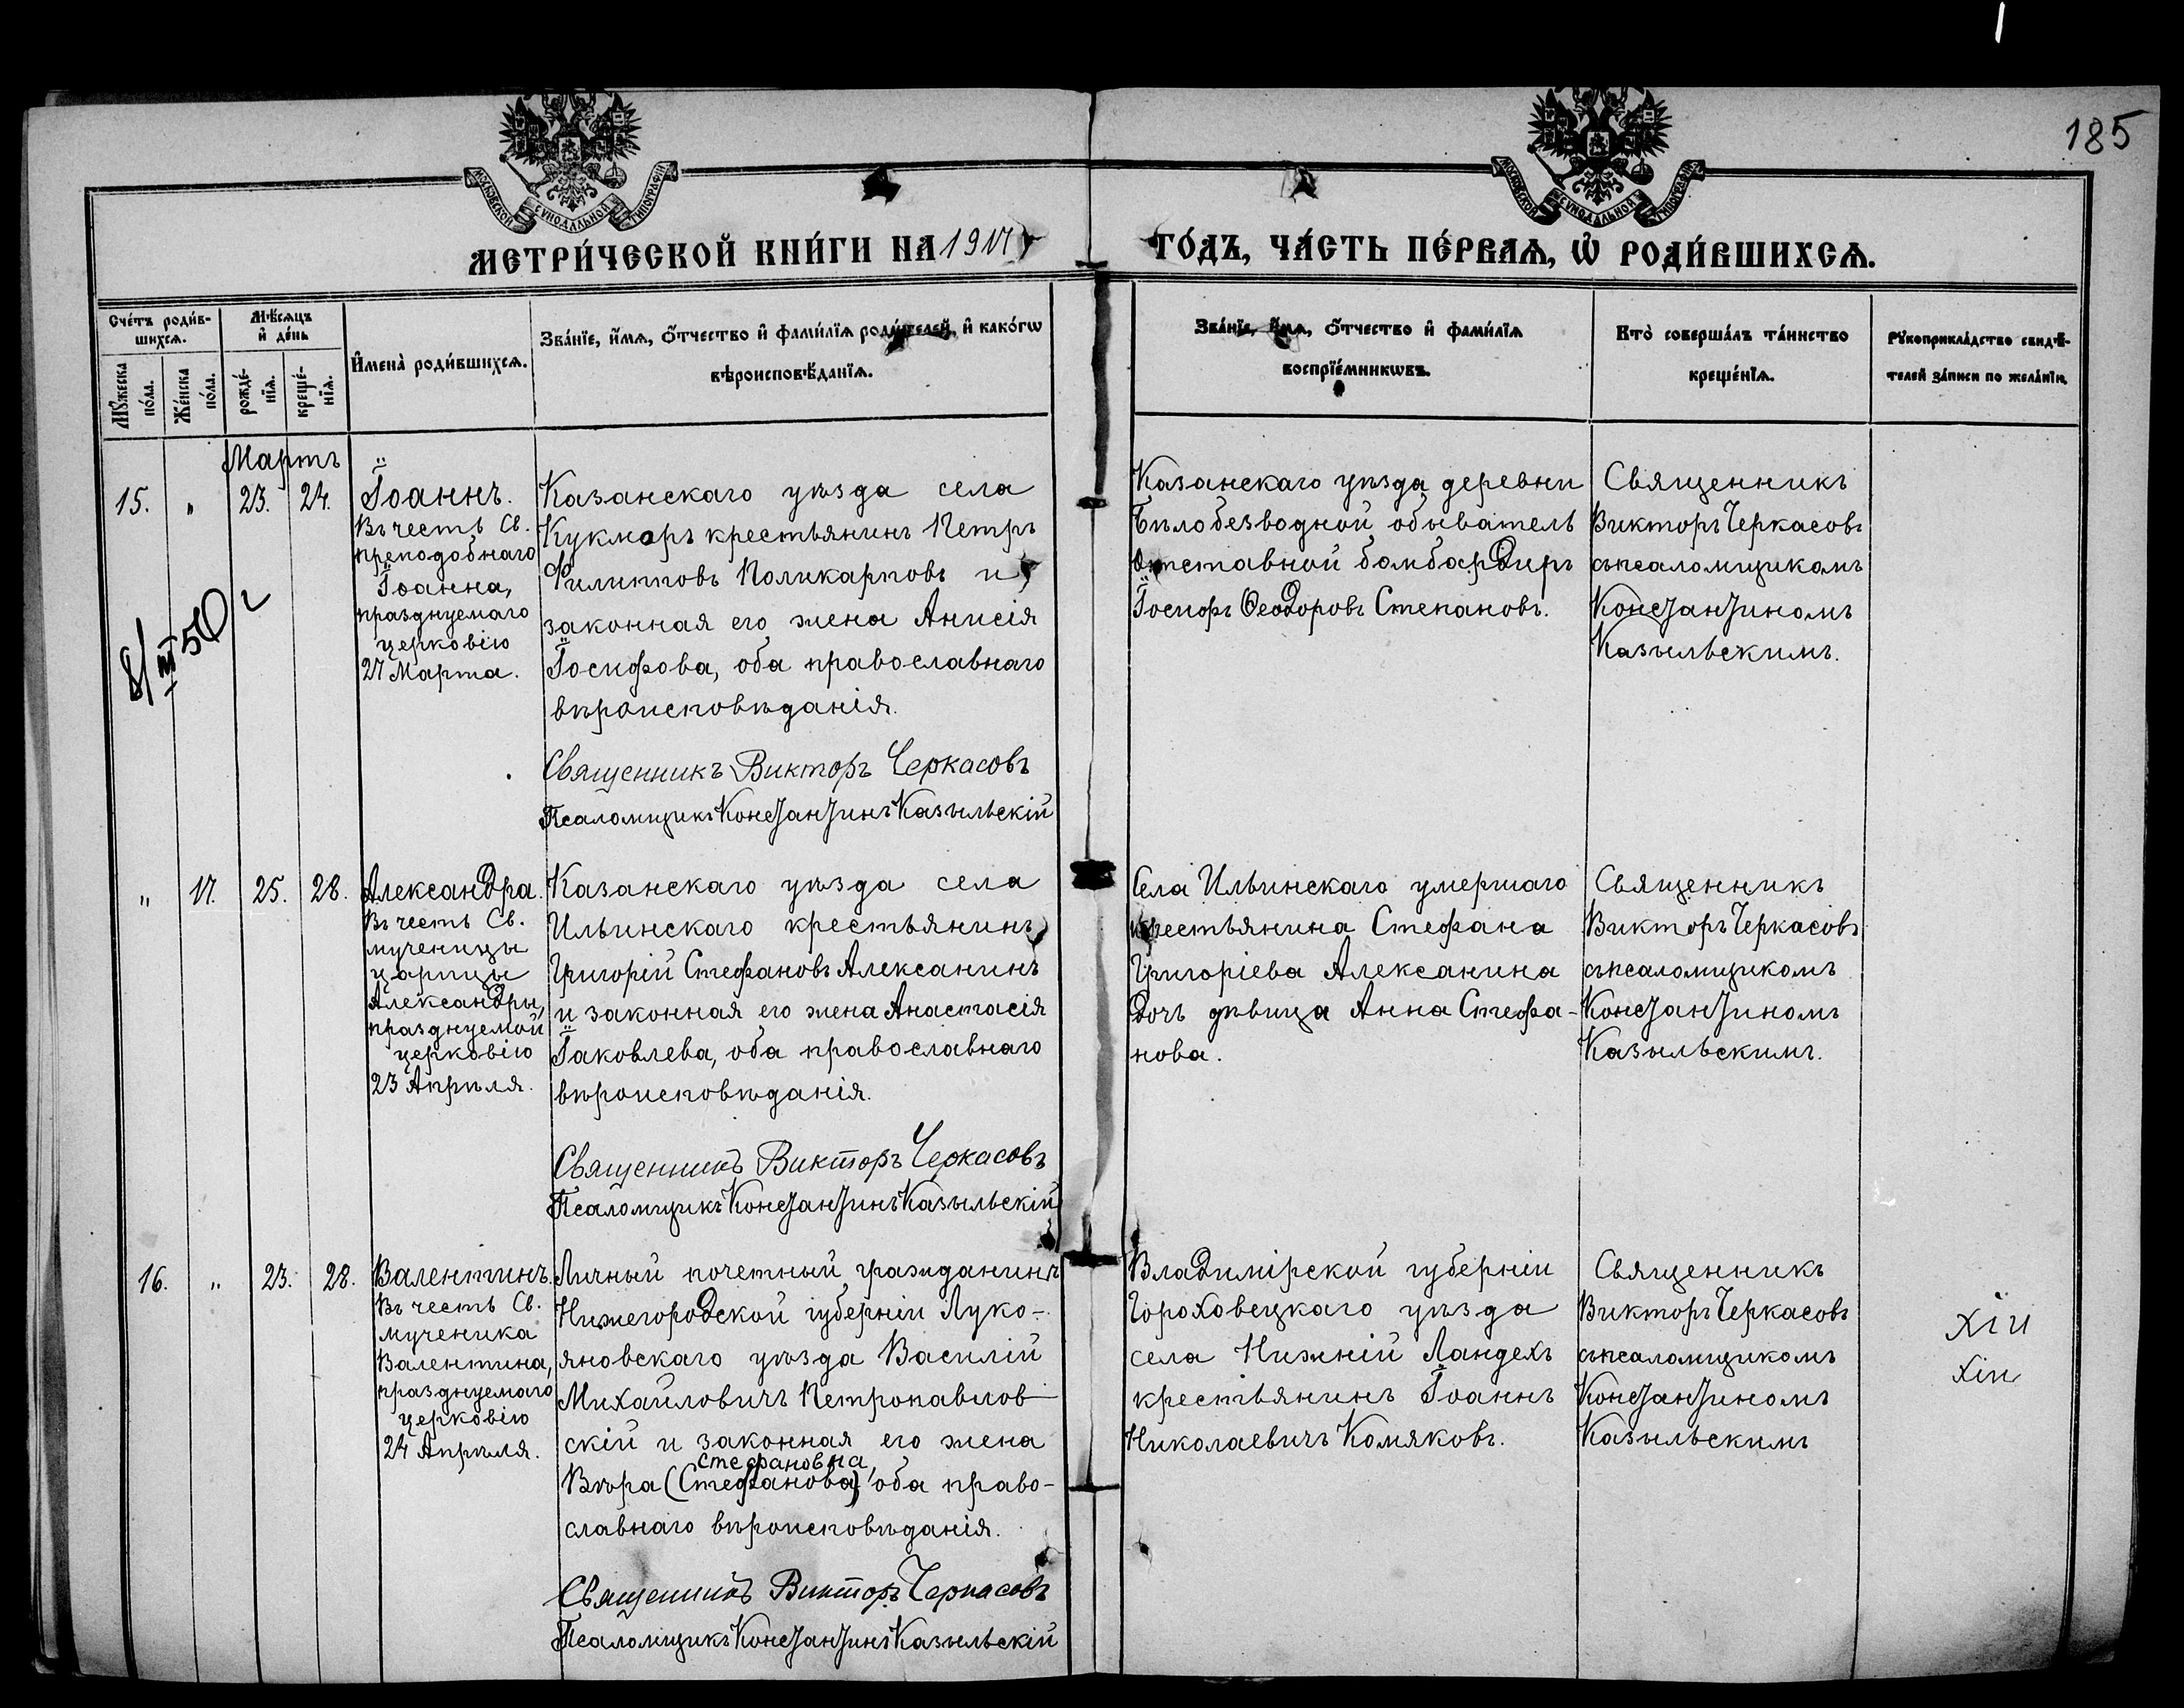 185
МОСКОВСКОЙ СѴНОДАЛЬНОЙ ТИПОГРАФІИ
МОСКОВСКОЙ СѴНОДАЛЬНОЙ ТИПОГРАФІИ
МЕТРИ́ЧЕСКОЙ КНИ́ГИ НА 1917
ГО́ДЪ, ЧА́СТЬ ПЕ́РВАѦ, Ѡ҆ РОДИ́ВШИХСѦ.
Сче́тъ роди́в-
шихсѧ.
Мѣ́сѧцъ
и҆ де́нь
Мꙋ́жеска
по́ла.
Же́нска
по́ла.
рожде́-
нїѧ.
креще́-
нїѧ.
И҆мена̀ роди́вшихсѧ.
Зва́нїе, и҆́мѧ, ѻ҆́тчество и҆ фами́лїѧ роди́телей, и҆ како́гѡ
вѣроисповѣ́данїѧ.
Зва́нїе, и҆́мѧ, ѻ҆́тчество и҆ фами́лїѧ
воспрїе́мникѡвъ.
Кто̀ соверша́лъ та́инство
креще́нїѧ.
Рꙋкоприкла́дство свидѣ́-
телей за́писи по жела́нїю.
Мартъ
15. " 23. 24.
Іоаннъ.
Въ честь Св.
преподобнаго
Іоанна,
празднуемаго
церковію
27 Марта.
8/III 50 г
Казанскаго уѣзда села
Кукморъ крестьянинъ Петръ
Филипповъ Поликарповъ и
законная его жена Анисія
Іосифова, оба православнаго
вѣроисповѣданія.
Священникъ Викторъ Черкасовъ
Псаломщикъ Константинъ Казыльскій
Казанскаго уѣзда деревни
Бѣлобезводной обыватель
Отставной бомбардиръ
Іосифъ Ѳеодоровъ Степановъ.
Священникъ
Викторъ Черкасовъ
съ псаломщикомъ
Константиномъ
Казыльскимъ.
" 17. 25. 28.
Александра.
Въ честь Св.
мученицы
царицы
Александры,
празднуемой
церковію
23 Апрѣля.
Казанскаго уѣзда села
Ильинскаго крестьянинъ
Григорій Стефановъ Алексанинъ
и законная его жена Анастасія
Іаковлева, оба православнаго
вѣроисповѣданія.
Священникъ Викторъ Черкасовъ
Псаломщикъ Константинъ Казыльскій
Села Ильинскаго умершаго
крестьянина Стефана
Григоріева Алексанина
дочь дѣвица Анна Стефа-
нова.
Священникъ
Викторъ Черкасовъ
съ псаломщикомъ
Константиномъ
Казыльскимъ.
16. " 23. 28.
Валентинъ.
Въ честь Св.
мученика
Валентина,
празднуемаго
церковію
24 Апрѣля.
Личный почетный гражданинъ
Нижегородской губерніи Луко-
яновскаго уѣзда Василій
Михайловичъ Петропавлов-
скій и законная его жена
Стефановна,
Вѣра (Стефанова) оба право-
славнаго вѣроисповѣданія.
Священникъ Викторъ Черкасовъ
Псаломщикъ Константинъ Казыльскій
Владимірской губерніи
Гороховецкаго уѣзда
села Нижній Ландехъ
крестьянинъ Іоаннъ
Николаевичъ Комяковъ.
Священникъ
Викторъ Черкасовъ
съ псаломщикомъ
Константиномъ
Казыльскимъ